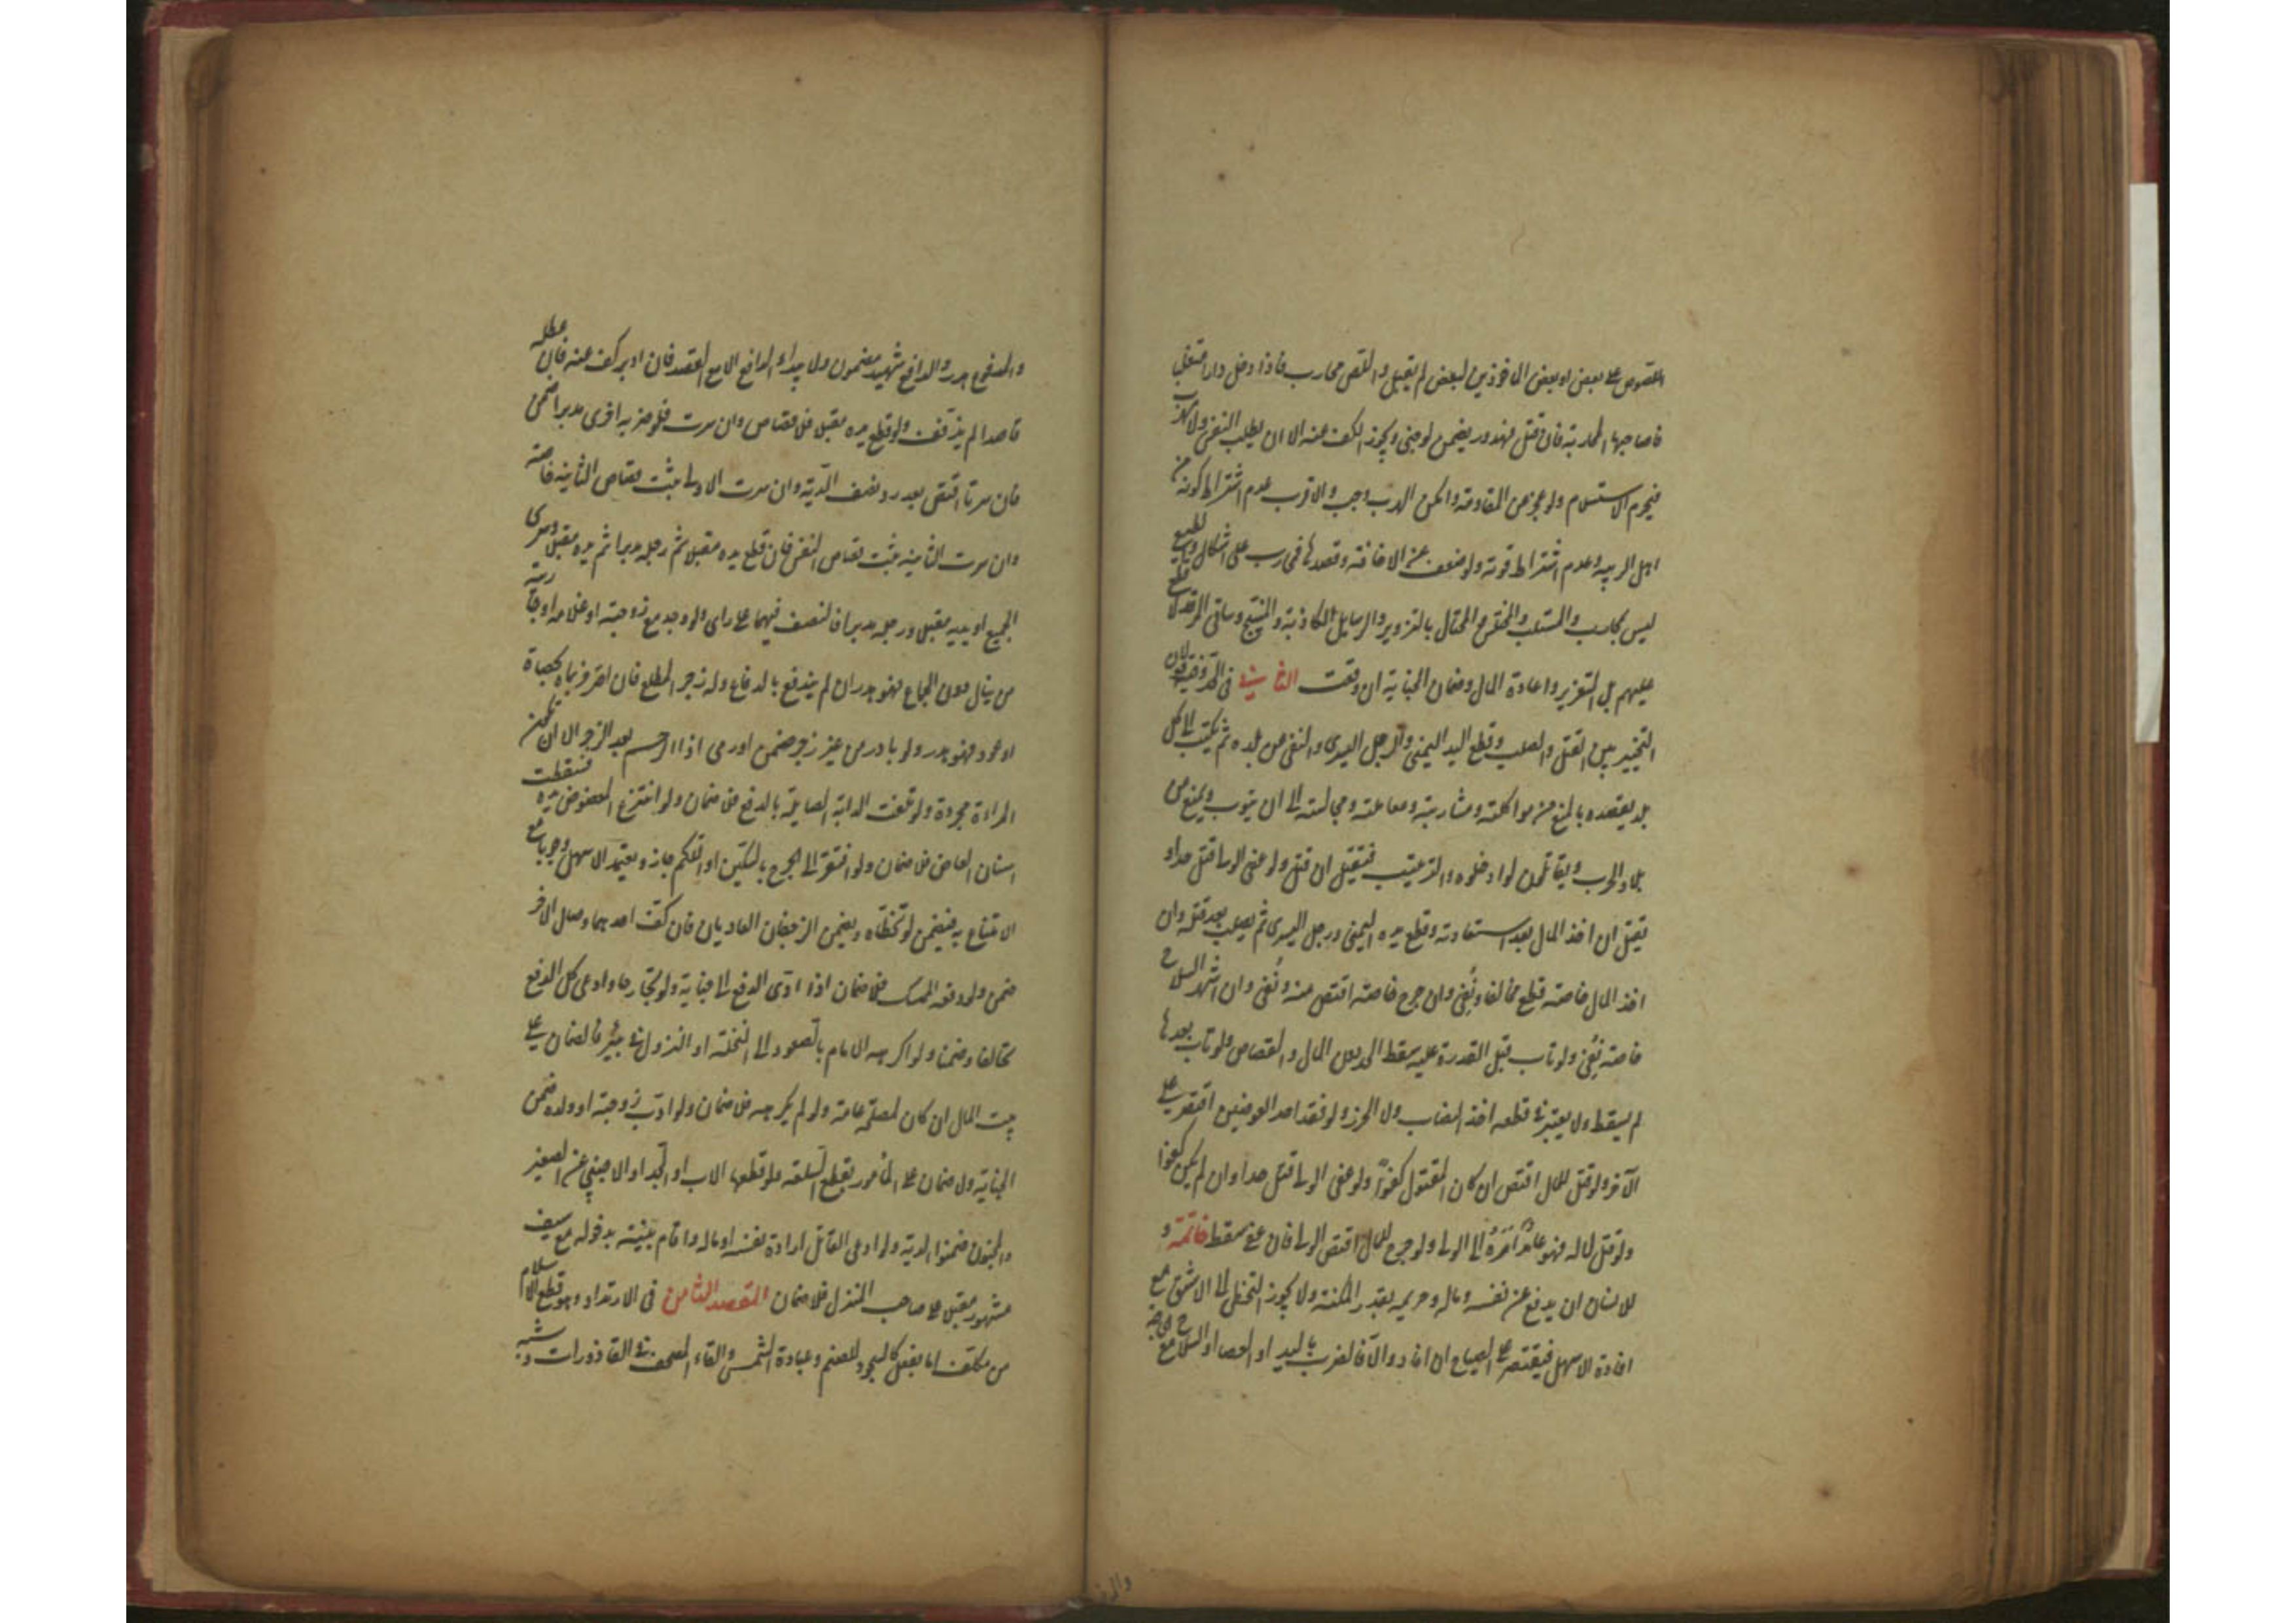 اللصوص على بعض او بعض المأخوذين لبعض لم يقبل واللص محارب فاذا دخل دارا متغلبا
فلصاحبها المحاربة فان قتل فهدر ويضمن لو جنى ويجوز الكف عنه الا ان يطلب النفس ولا مهرب
فيحرم الاستسلام ولو عجز عن المقاومة وامكن الهرب وجب والاقرب عدم اشتراط كونه من
اهل الريبة وعدم اشتراط قوته ولو ضعف عن الاخافة وقصدها فمحارب على اشكال والطليع
ليس بمحارب والمستلب والمختلس والمحتال بالتزوير والرسايل الكاذبة والمبنج وساقي المرقد لا قطع
عليهم بل التعزير واعادة المال وضمان الجناية ان وقعت الثانية في الحد وفيه قولان
التخيير بين القتل والصلب وقطع اليد اليمنى والرجل اليسرى والنفي من بلده ثم يكتب الى كل
بلد يقصده بالمنع من مواكلته ومشاربته ومعاملته ومجالسته الى ان يتوب ويمنع من
بلاد الحرب ويقاتلون لو ادخلوه والترتيب فيقتل ان قتل ولو عفى الولي قتل حدا و
يقتل ان اخذ المال بعد استعادته وقطع يده اليمنى ورجله اليسرى ثم يصلب بعد قتله وان
اخذ المال خاصة قطع مخالفا ونفي وان جرح خاصة اقتص منه ونفي وان اشهر السلاح
خاصة نفي ولو تاب قبل القدرة عليه سقط الحد دون المال والقصاص ولو تاب بعدها
لم يسقط ولا يعتبر في قطعه اخذ النصاب ولا الحرز ولو فقد احد العضوين اقتصر على
الآخر ولو قتل للمال اقتص ان كان المقتول كفوا ولو عفى الولي قتل حدا وان لم يكن كفوا
ولو قتل لا له فهو عامد امره الى الولي ولو جرح للمال اقتص الولي فان عفى سقط خاتمة و
للانسان ان يدفع عن نفسه وماله وحريمه بقدر المكنة ولا يجوز التخطي الى الاشق مع
افادة الاسهل فيقتصر على الصياح ان افاد والا فالضرب باليد او العصا او السلاح مع الحاجة
والمدفوع هدر والدافع شهيد مضمون ولا يبداء الدافع الا مع القصد فان ادبر كف عنه فان عطله
قاصدا لم يذفف ولو قطع يده مقبلا فلا قصاص وان سرت فلو ضربه اخرى مدبرا ضمن
فان سرتا اقتص بعد رد نصف الدية وان سرت الاولى ثبت قصاص الثانية خاصة
وان سرت الثانية ثبت قصاص النفس فان قطع يده مقبلا ثم رجله مدبرا ثم يده مقبلا وسرى
الجميع او يديه مقبلا ورجله مدبرا فالنصف فيهما على راى ولو وجد مع زوجته او غلامه او جاريته
من ينال دون الجماع فهو هدر ان لم يندفع بالدفاع وله زجر المطلع فان اصر فرماه بحصاة
او عود فهو هدر ولو بادر من غير زجر ضمن او رمى اذا الرحم بعد الزجر الا ان تكون
المراءة مجردة ولو تلفت الدابة الصايلة بالدفع فلا ضمان ولو انتزع المعضوض يده فسقطت
اسنان العاض فلا ضمان ولو افتقر الى الجرح بالسكين او اللكم جاز ويعتمد الاسهل وجوبا مع
الامتناع به فيضمن لو تخطاه ويضمن الزحفان العاديان فان كف احدهما وصال الآخر
ضمن ولو دفعه الممسك فلا ضمان اذا ادى الدفع الى جناية ولو تجارحا وادعى كل الدفع
تحالفا وضمنا ولو اكرهه الامام بالصعود الى النخلة او النزول في بئر فالضمان على
بيت المال ان كان لمصلحة عامة ولو لم يكرهه فلا ضمان ولو ادب زوجته او ولده ضمن
الجناية ولا ضمان على المأمور بقطع السلعة ولو قطعها الاب او الجد او الاجنبي عن الصغير
والمجنون ضمنوا الدية ولو ادعى القاتل ارادة نفسه او ماله واقام بينة بدخوله مع سيف
مشهور مقبلا على صاحب المنزل فلا ضمان المقصد الثامن في الارتداد وهو قطع الاسلام
من مكلف اما بفعل كالسجود للصنم وعبادة الشمس والقاء المصحف في القاذورات وشبه